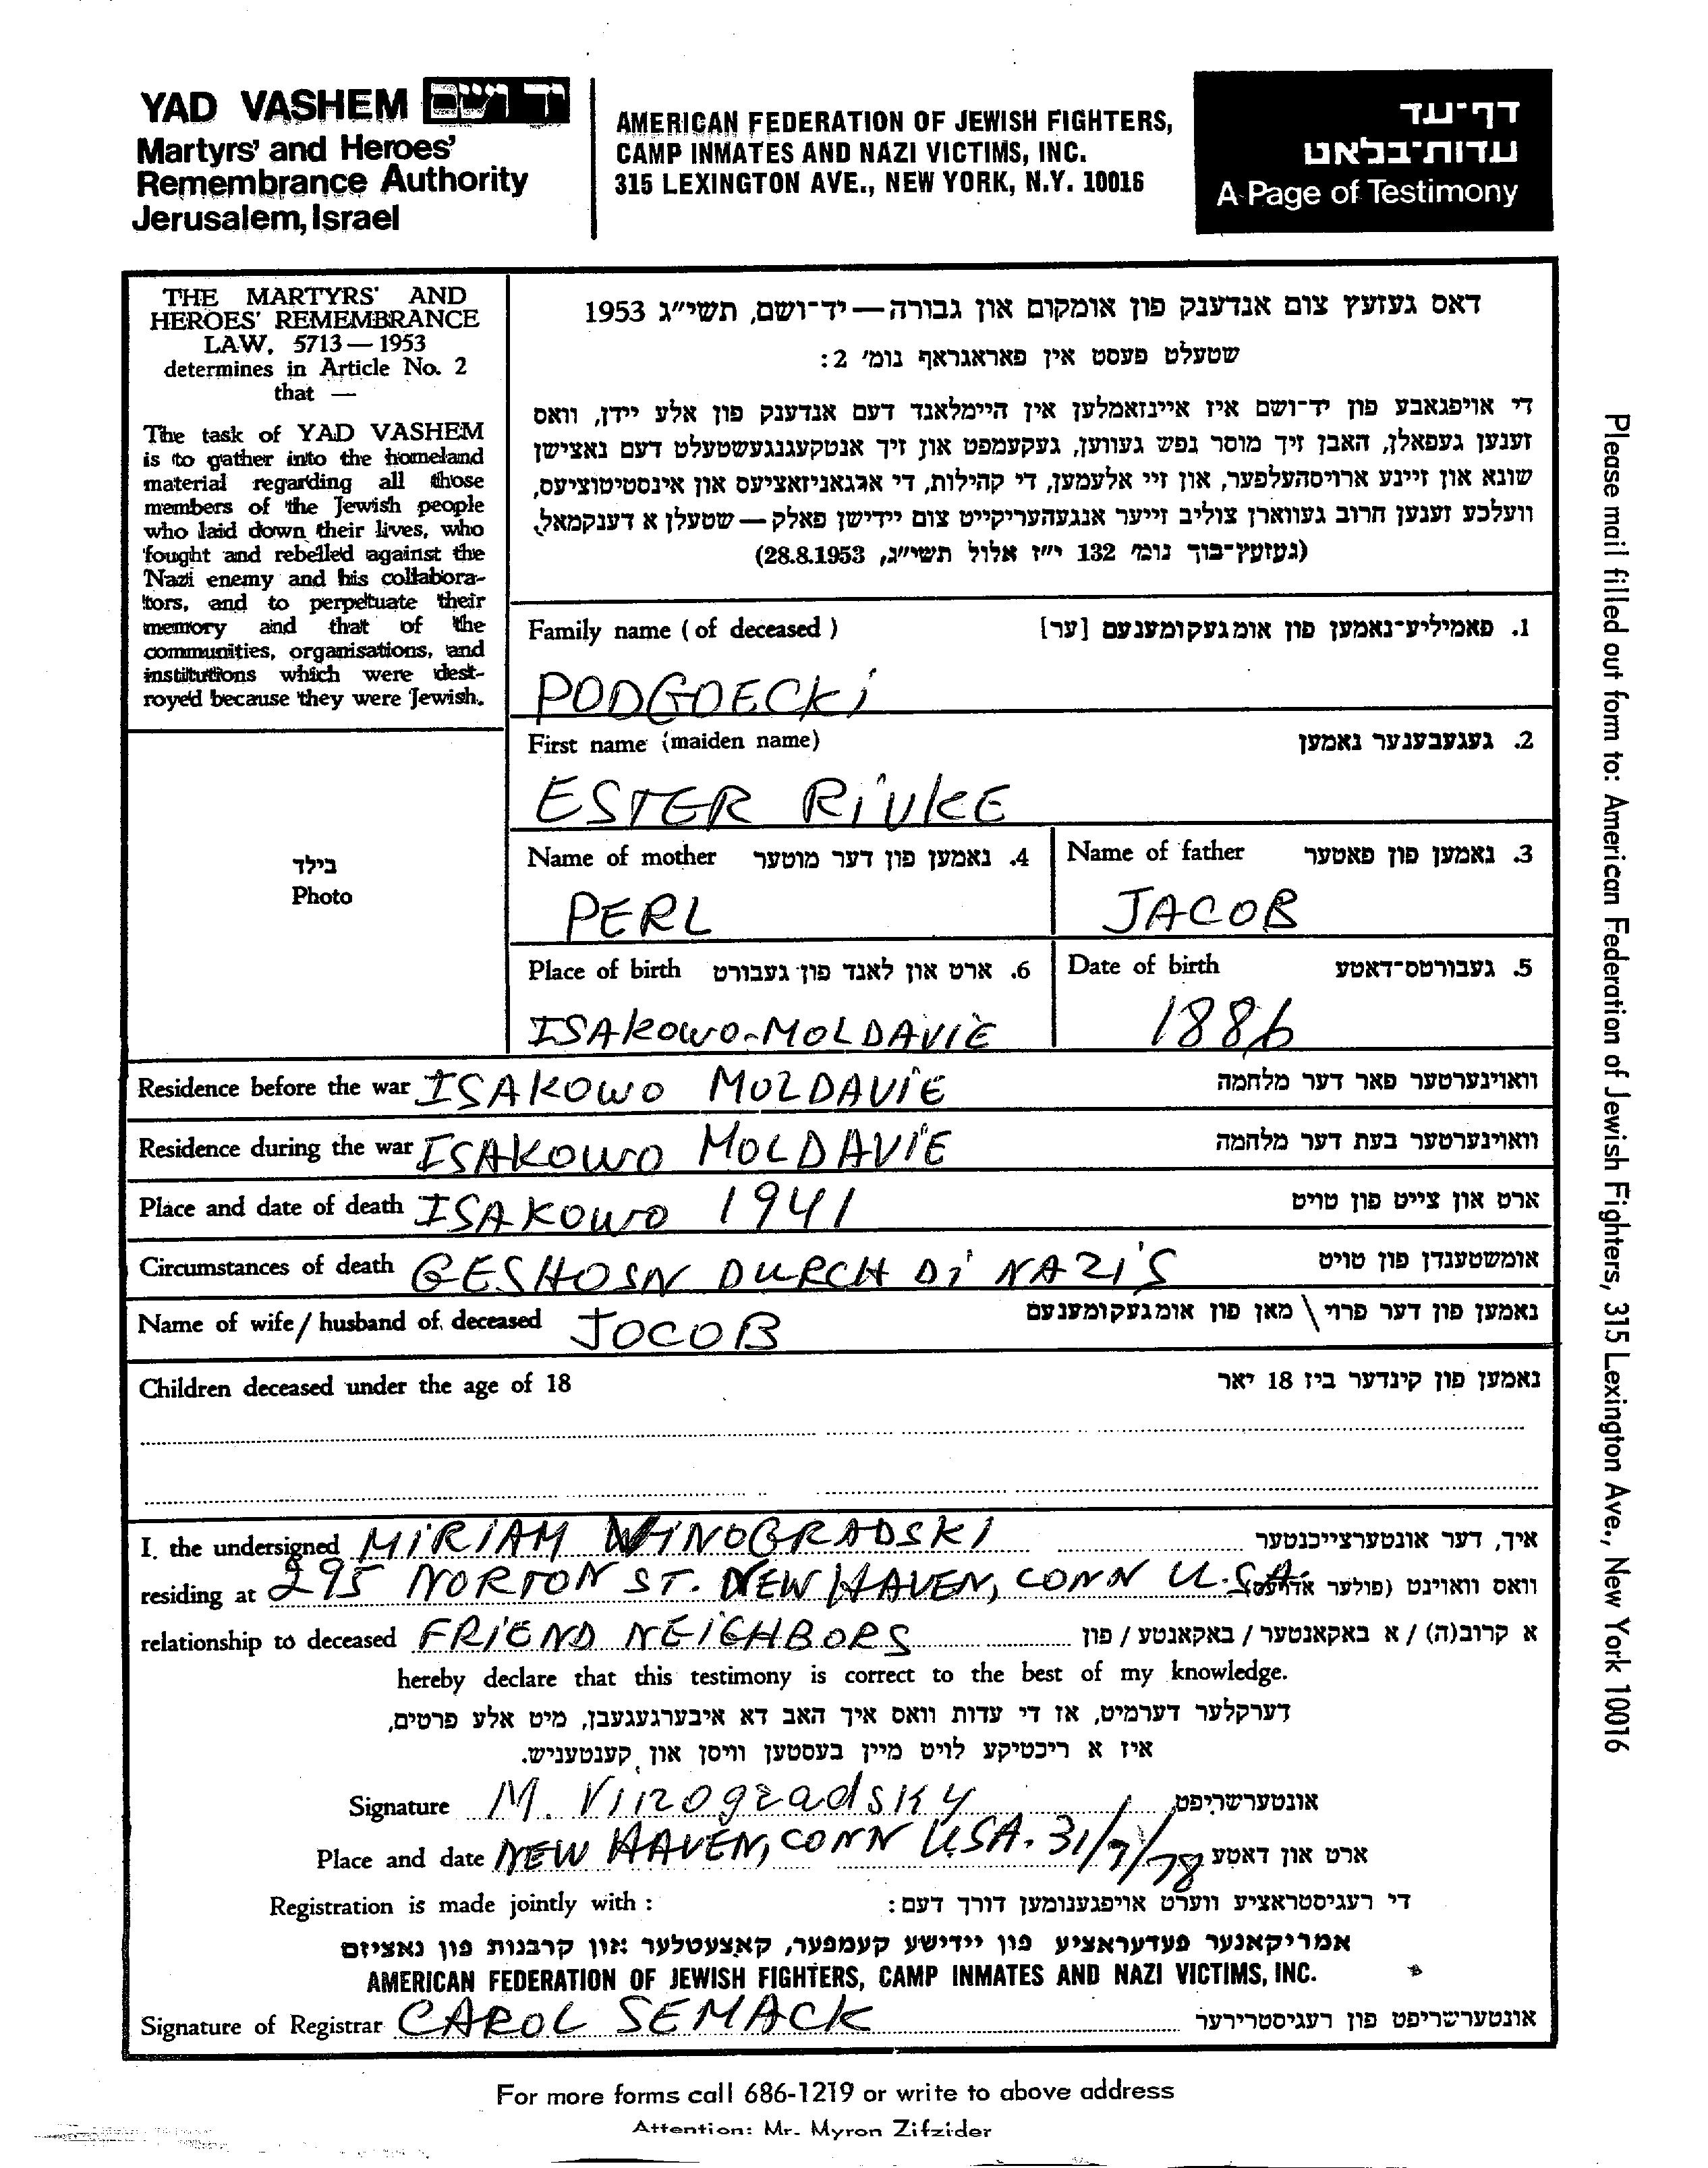 YAD VASHEM יד ושם
Martyrs' and Heroes'
Remembrance Authority
Jerusalem, Israel
AMERICAN FEDERATION OF JEWISH FIGHTERS,
CAMP INMATES AND NAZI VICTIMS, INC.
315 LEXINGTON AVE., NEW YORK, N.Y. 10016
דף-עד
עדות-בלאט
A Page of Testimony
THE MARTYRS' AND
HEROES' REMEMBRANCE
LAW, 5713—1953
determines in Article No. 2
that —
The task of YAD VASHEM
is to gather into the homeland
material regarding all those
members of the Jewish people
who laid down their lives, who
fought and rebelled against the
Nazi enemy and his collabora-
tors, and to perpetuate their
memory and that of the
communities, organisations, and
institutions which were dest-
royed because they were Jewish.
דאס געזעץ צום אנדענק פון אומקום און גבורה — יד-ושם, תשי"ג 1953
שטעלט פעסט אין פאראגראף נומ' 2:
די אויפגאבע פון יד-ושם איז איינזאמלען אין היימלאנד דעם אנדענק פון אלע יידן, וואס
זענען געפאלן, האבן זיך מוסר נפש געווען, געקעמפט און זיך אנטקעגנגעשטעלט דעם נאצישן
שונא און זיינע ארויסהעלפער, און זיי אלעמען, די קהילות, די ארגאניזאציעס און אינסטיטוציעס,
וועלכע זענען חרוב געווארן צוליב זייער אנגעהעריקייט צום יידישן פאלק — שטעלן א דענקמאל.
(געזעץ-בוך נומ' 132 י"ז אלול תשי"ג, 28.8.1953)
Family name (of deceased) 1. פאמיליע-נאמען פון אומגעקומענעם [ער]
PODGOECKi
First name (maiden name) 2. געגעבענער נאמען
ESTER RiVKE
Name of mother 4. נאמען פון דער מוטער
PERL
Name of father 3. נאמען פון פאטער
JACOB
Place of birth 6. ארט און לאנד פון געבורט
ISAKOWO-MOLDAVIE
Date of birth 5. געבורטס-דאטע
1886
בילד
Photo
Residence before the war ISAKOWO MOLDAVIE וואוינערטער פאר דער מלחמה
Residence during the war ISAKOWO MOLDAVIE וואוינערטער בעת דער מלחמה
Place and date of death ISAKOWO 1941 ארט און צייט פון טויט
Circumstances of death GESHOSN DURCH Di NAZI'S אומשטענדן פון טויט
Name of wife / husband of deceased JOCOB נאמען פון דער פרוי \ מאן פון אומגעקומענעם
Children deceased under the age of 18 נאמען פון קינדער ביז 18 יאר
I. the undersigned MIRIAM WINOGRADSKI איך, דער אונטערצייכנטער
residing at 295 NORTON ST. NEW HAVEN, CONN U.S.A. וואס וואוינט (פולער אדרעס)
relationship to deceased FRIEND NEIGHBORS א קרוב(ה) / א באקאנטער / באקאנטע / פון
hereby declare that this testimony is correct to the best of my knowledge.
דערקלער דערמיט, אז די עדות וואס איך האב דא איבערגעגעבן, מיט אלע פרטים,
איז א ריכטיקע לויט מיין בעסטען וויסן און קענטעניש.
Signature M. Vinogradsky אונטערשריפט
Place and date NEW HAVEN, CONN USA. 31/7/78 ארט און דאטע
Registration is made jointly with : די רעגיסטראציע ווערט אויפגענומען דורך דעם:
אמריקאנער פעדעראציע פון יידישע קעמפער, קאצעטלער און קרבנות פון נאציזם
AMERICAN FEDERATION OF JEWISH FIGHTERS, CAMP INMATES AND NAZI VICTIMS, INC.
Signature of Registrar CAROL SEMACK אונטערשריפט פון רעגיסטרירער
For more forms call 686-1219 or write to above address
Attention: Mr. Myron Zifzider
Please mail filled out form to: American Federation of Jewish Fighters, 315 Lexington Ave., New York 10016